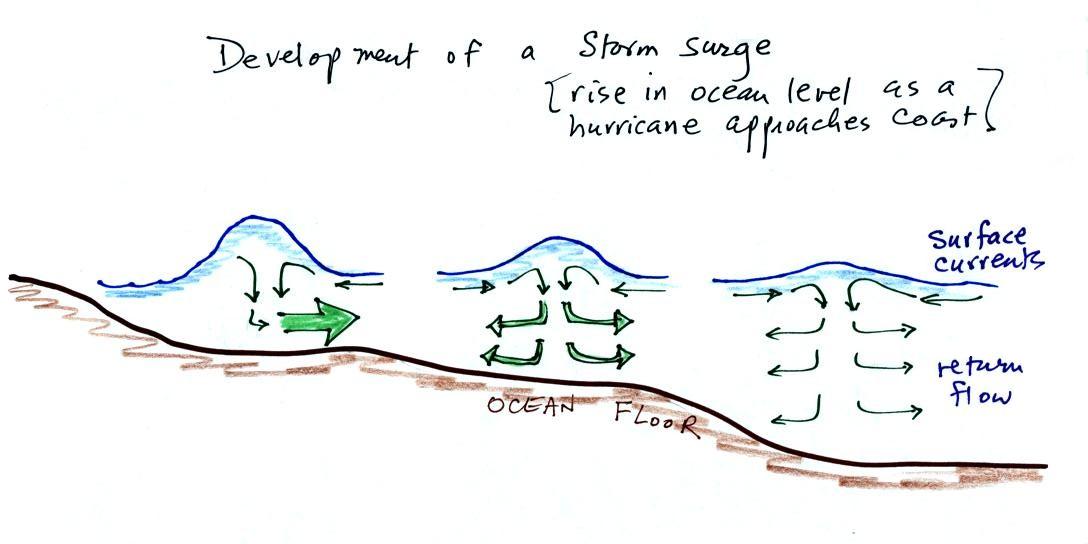 Development of a Storm surge
[rise in ocean level as a
hurricane approaches coast]
surface
currents
return
flow
OCEAN FLOOR